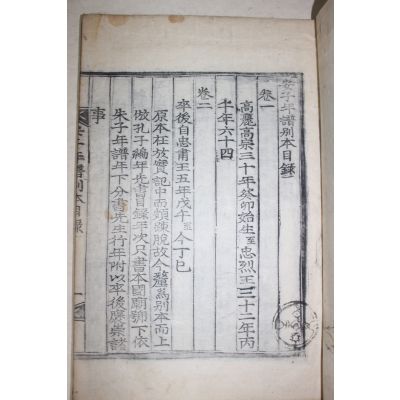 安子年譜別本目錄
卷一
高麗高宗三十年癸卯始生至忠烈王三十二年丙
午年六十四
卷二
卒後自忠肅王五年戊午至今丁巳
原本在於實記中而頗踈脫故人釐爲別本而上
倣孔子編年先書目錄年次只書本國廟號下依
朱子年譜年下分書先生行年附以卒後褒崇諸
事
安子年譜別本目錄
一